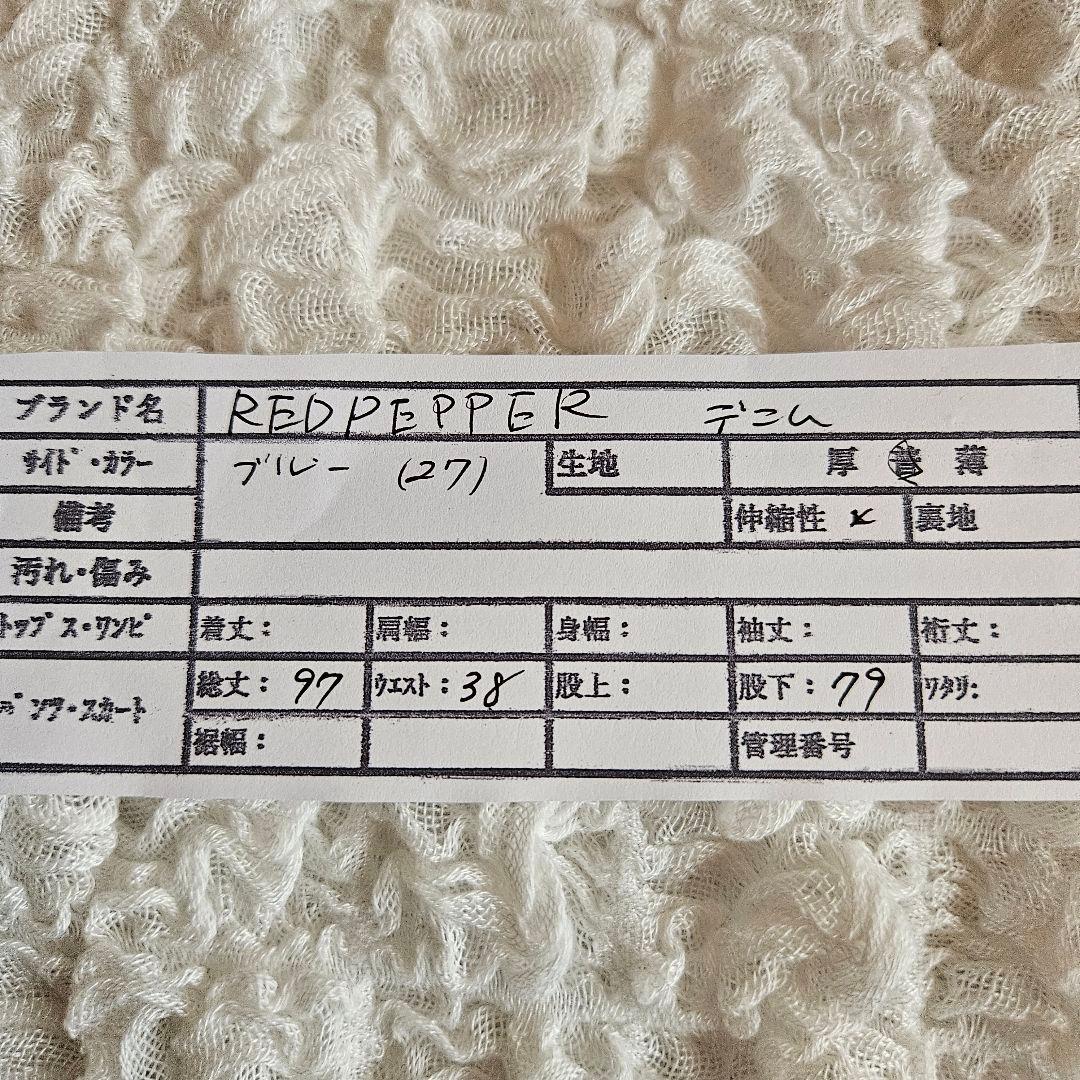 ブランド名 REDPEPPER デニム
サイド・カラー ブルー (27) 生地 厚 普 薄
備考 伸縮性 × 裏地
汚れ・傷み
トップス・ワンピ 着丈: 肩幅: 身幅: 袖丈: 裄丈:
パンツ・スカート 総丈: 97 ウエスト: 38 股上: 股下: 79 ワタリ:
裾幅: 管理番号